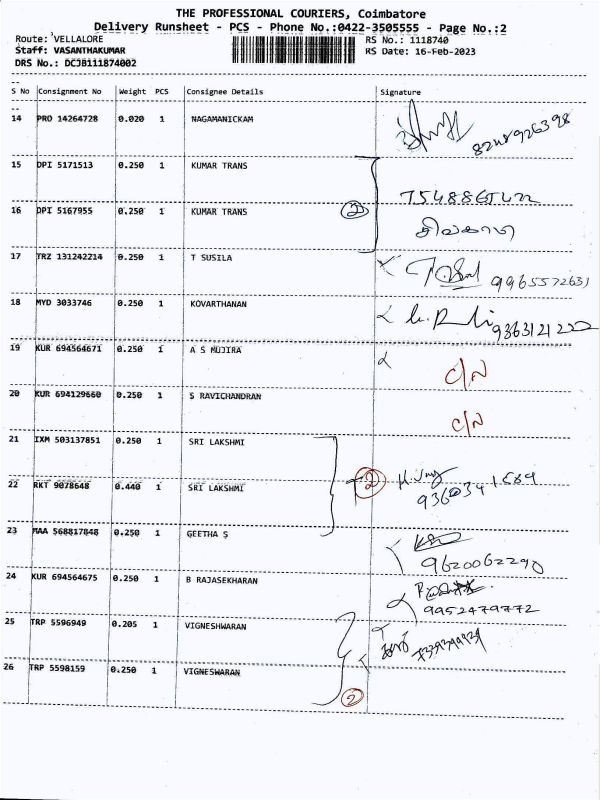 THE PROFESSIONAL COURIERS, Coimbatore
Delivery Runsheet - PCS - Phone No.:0422-3505555 - Page No.:2
Route: VELLALORE RS No.: 1118740
Staff: VASANTHAKUMAR RS Date: 16-Feb-2023
DRS No.: DCJB111874002
S No Consignment No Weight PCS Consignee Details Signature
14 PRO 14264728 0.020 1 NAGAMANICKAM
8248926398
15 DPI 5171513 0.250 1 KUMAR TRANS
16 DPI 5167955 0.250 1 KUMAR TRANS 2
17 TRZ 131242214 0.250 1 T SUSILA 9965572631
18 MYD 3033746 0.250 1 KOVARTHANAN 9363121222
19 KUR 694564671 0.250 1 A S MUJIRA C/N
20 KUR 694129660 0.250 1 S RAVICHANDRAN C/N
21 IXM 503137851 0.250 1 SRI LAKSHMI
22 RKT 9078648 0.440 1 SRI LAKSHMI 2
23 MAA 568817848 0.250 1 GEETHA S
9620062290
24 KUR 694564675 0.250 1 B RAJASEKHARAN
9952479772
25 TRP 5596949 0.205 1 VIGNESHWARAN
26 TRP 5598159 0.250 1 VIGNESWARAN 2